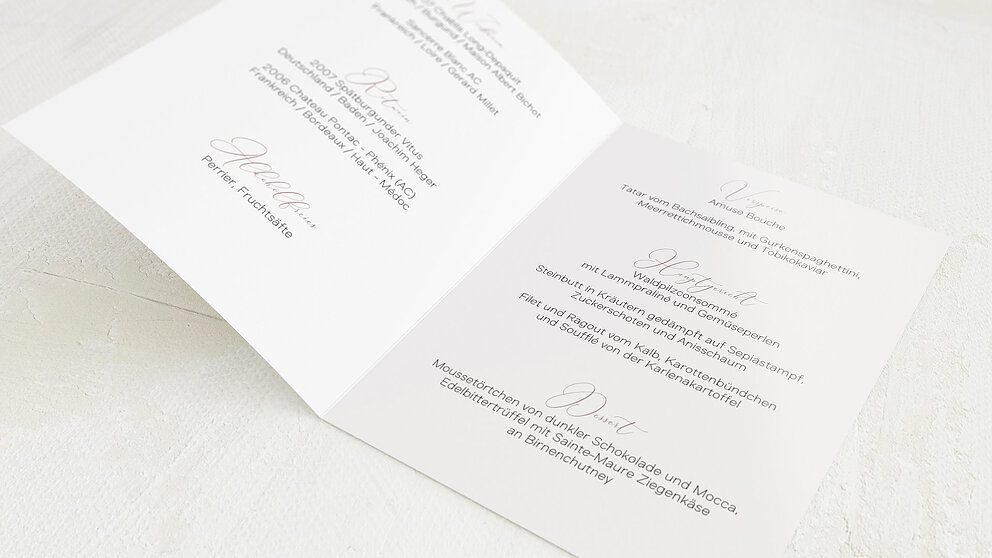 Wein
Chablis Long-Depaquit
/ Burgund / Maison Albert Bichot
Sancerre Blanc AC
Frankreich / Loire / Gerard Millet
Rotwein
2007 Spätburgunder Vitus
Deutschland / Baden / Joachim Heger
2006 Chateau Pontac - Phénix (AC)
Frankreich / Bordeaux / Haut - Médoc
Alkoholfreies
Perrier, Fruchtsäfte
Vorspeise
Amuse Bouche
Tatar vom Bachsaibling, mit Gurkenspaghettini,
Meerrettichmousse und Tobikokaviar
Hauptgericht
Waldpilzconsommé
mit Lammpraliné und Gemüseperlen
Steinbutt in Kräutern gedämpft auf Sepiastampf,
Zuckerschoten und Anisschaum
Filet und Ragout vom Kalb, Karottenbündchen
und Soufflé von der Karlenakartoffel
Dessert
Moussetörtchen von dunkler Schokolade und Mocca,
Edelbittertrüffel mit Sainte-Maure Ziegenkäse
an Birnenchutney